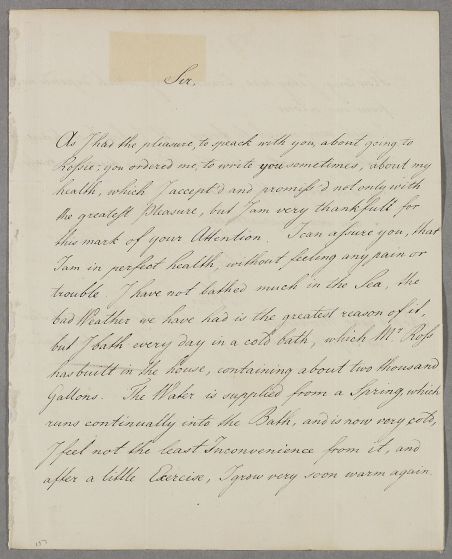 Sir,
As I had the pleasure, to speack with you, about going to
Rossie; you ordered me, to write you sometimes, about my
health, which I accept'd and promiss'd not only with
the greatest Pleasure, but I am very thankfull for
this mark of your Attention. I can assure you, that
I am in perfect health, without feeling any pain or
trouble I have not bathed much in the Sea, the
bad Weather we have had is the greatest reason of it,
but I bath every day in a cold bath, which Mr Ross
has built in the house, containing about two thousand
Gallons. The Water is supplied from a Spring, which
runs continually into the Bath, and is now very cold,
I feel not the least Inconvenience from it, and
after a little Exercise, I grow very soon warm again